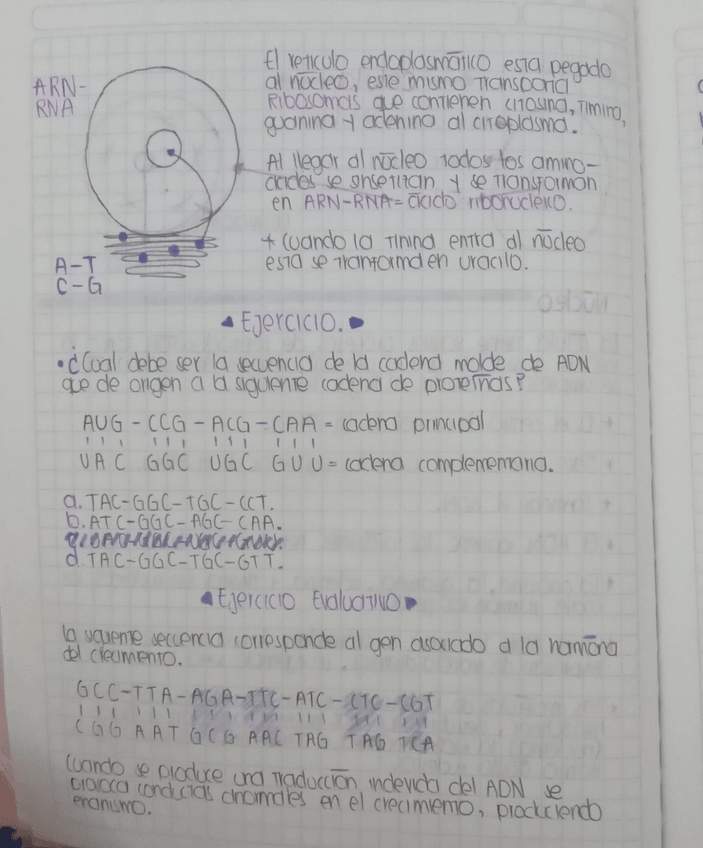 ARN-
RNA
El reticulo endoplasmático esta pegado
al núcleo, este mismo transporta
Ribosomas que contienen citosina, Timina,
guanina y adenina al citoplasma.
Al llegar al núcleo todos los amino-
acidos se y se transforman
en ARN-RNA= ácido ribonucleico.
+ Cuando la Tinina entra al núcleo
esta se transforma en uracilo.
A-T
C-G
Ejercicio.
• ¿Cual debe ser la secuencia de la cadena molde de ADN
que de origen a la siguiente cadena de proteínas?
AUG - CCG - ACG - CAA = cadena principal
UAC GGC UGC GUU = cadena complementaria.
a. TAC-GGC-TGC-CCT.
b. ATC-GGC-AGC-CAA.
d. TAC-GGC-TGC-GTT.
Ejercicio Evaluativo
la siguiente secuencia corresponde al gen asociado a la hormona
del crecimiento.
GCC-TTA-AGA-TTC-ATC-CTC-CGT
CGG AAT GCG AAC TAG TAG TCA
Cuando se produce una traducción indevida del ADN se
conductas anormales en el crecimiento, produciendo
enanismo.